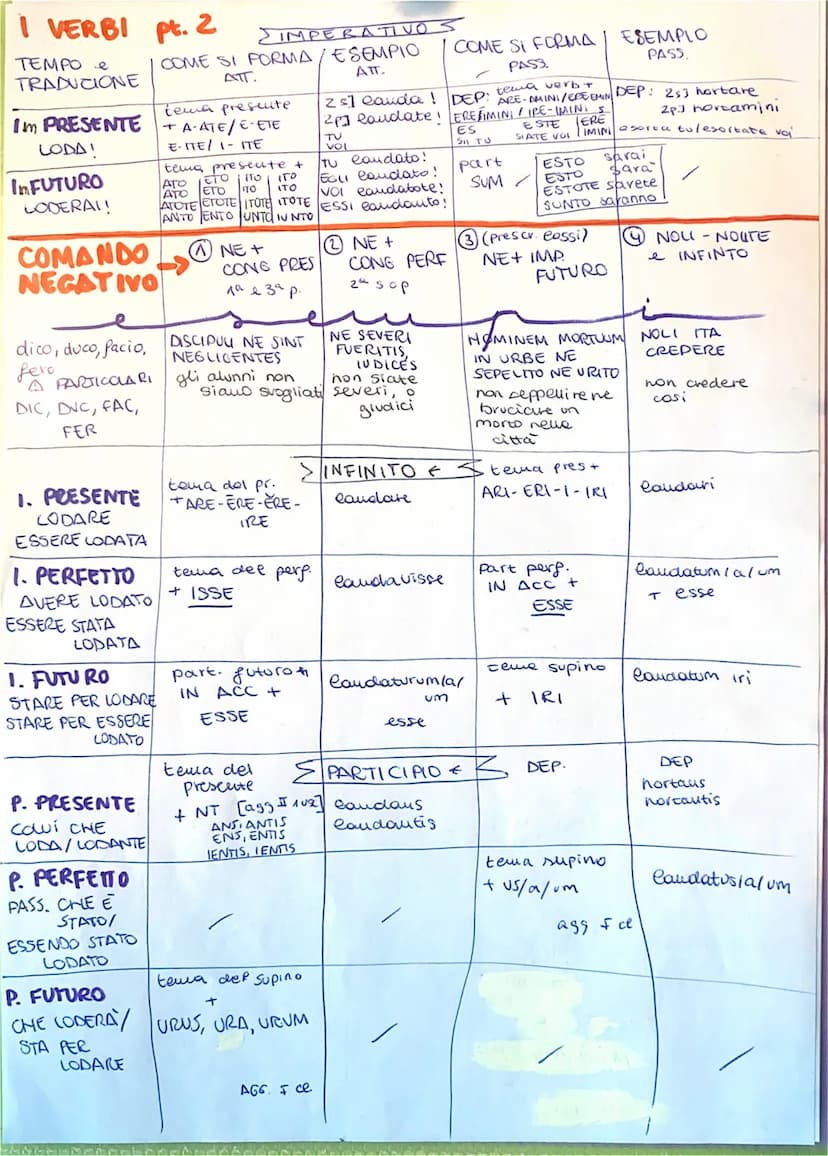 I VERBI pt. 2
IMPERATIVO
TEMPO e TRADUZIONE
COME SI FORMA ATT.
ESEMPIO ATT.
COME SI FORMA PASS.
ESEMPIO PASS.
Im PRESENTE
LODA!
tema presente
+ A-ATE/E-ETE
E-ITE/ I-ITE
2 s] lauda!
2p] laudate!
TU
VOI
DEP: tema verb +
ARE-AMINI/
ES
SII TU
ESTE
SIATE VOI
DEP: 2s] hortare
2p] hortamini
esorta tu/esortate voi
In FUTURO
LODERAI!
tema presente +
ATO ETO ITO ITO
ATO ETO ITO ITO
ATOTE ETOTE ITOTE ITOTE
ANTO ENTO UNTO IUNTO
TU laudato!
EGLI laudato!
VOI laudatote!
ESSI laudanto!
part
SUM /
ESTO sarai
ESTO sarà
ESTOTE sarete
SUNTO saranno
/
COMANDO NEGATIVO →
① NE +
CONG PRES
1ª e 3ª p.
② NE +
CONG PERF
2ª s o p
③ (prescr. lassi)
NE+ IMP.
FUTURO
④ NOLI - NOLITE
e INFINTO
esempi
dico, duco, facio,
fero
⚠ PARTICOLARI
DIC, DUC, FAC,
FER
DISCIPULI NE SINT
NEGLIGENTES
gli alunni non
siano svogliati
NE SEVERI
FUERITIS,
IUDICES
non siate
severi, o
giudici
HOMINEM MORTUUM
IN URBE NE
SEPELITO NE URITO
non seppellire ne
bruciare un
morto nella
città
NOLI ITA
CREDERE
non credere
così
INFINITO ←
I. PRESENTE
LODARE
ESSERE LODATA
tema del pr.
+ ARE-ĒRE-ĔRE-
IRE
laudare
tema pres +
ARI-ERI-I-IRI
laudari
I. PERFETTO
AVERE LODATO
ESSERE STATA
LODATA
tema del perf.
+ ISSE
laudavisse
part perf.
IN ACC +
ESSE
laudatum/a/um
+ esse
I. FUTURO
STARE PER LODARE
STARE PER ESSERE
LODATO
part. futuro +
IN ACC +
ESSE
laudaturum/a/
um
esse
tema supino
+ IRI
laudatum iri
PARTICIPIO ←
P. PRESENTE
COLUI CHE
LODA/LODANTE
tema del
presente
+ NT [agg II 1 us]
ANS, ANTIS
ENS, ENTIS
IENTIS, IENTIS
laudans
laudantis
DEP.
DEP
hortans
hortantis
P. PERFETTO
PASS. CHE È
STATO/
ESSENDO STATO
LODATO
/
/
tema supino
+ us/a/um
agg I cl
laudatus/a/um
P. FUTURO
CHE LODERÀ/
STA PER
LODARE
tema del supino
+
URUS, URA, URUM
AGG. I cl
/
/
/